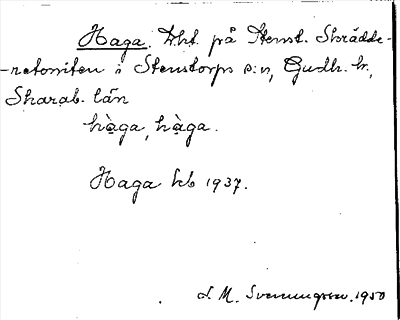 Haga. Lht. på Stenst. Skrädde-
-retomten i Stenstorps s:n, Gudh. hr.,
Skarab. län
hàga, hàga.
Haga kb 1937.
M. Svenungsson. 1950